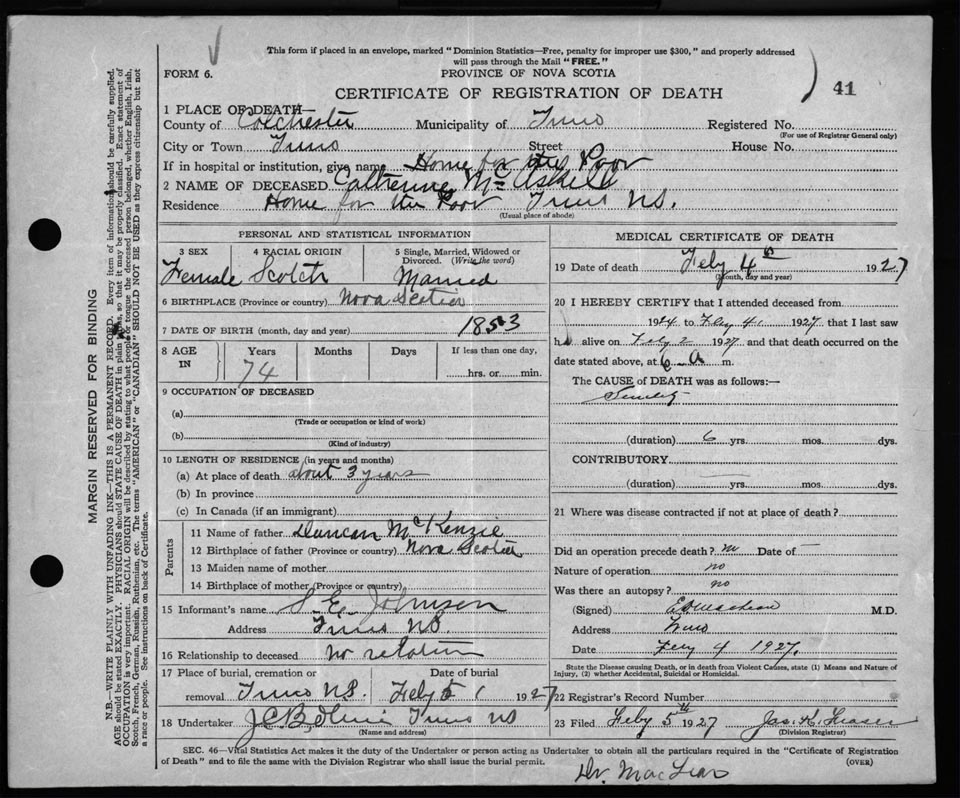 This form if placed in an envelope, marked "Dominion Statistics—Free, penalty for improper use $300," and properly addressed
will pass through the Mail "FREE."
FORM 6.
PROVINCE OF NOVA SCOTIA
41
CERTIFICATE OF REGISTRATION OF DEATH
1 PLACE OF DEATH—
County of Colchester Municipality of Truro Registered No.
(For use of Registrar General only)
City or Town Truro Street House No.
If in hospital or institution, give name Home for the Poor
2 NAME OF DECEASED Catherine McAskill
Residence Home for the Poor Truro N.S.
(Usual place of abode)
PERSONAL AND STATISTICAL INFORMATION
3 SEX 4 RACIAL ORIGIN 5 Single, Married, Widowed or Divorced. (Write the word)
Female Scotch Married
6 BIRTHPLACE (Province or country) Nova Scotia
7 DATE OF BIRTH (month, day and year) 1853
8 AGE IN Years Months Days If less than one day,
74 hrs. or min.
9 OCCUPATION OF DECEASED
(a)
(Trade or occupation or kind of work)
(b)
(Kind of industry)
10 LENGTH OF RESIDENCE (in years and months)
(a) At place of death about 3 years
(b) In province
(c) In Canada (if an immigrant)
Parents
11 Name of father Duncan McKenzie
12 Birthplace of father (Province or country) Nova Scotia
13 Maiden name of mother
14 Birthplace of mother (Province or country)
15 Informant's name S. E. Johnson
Address Truro N.S.
16 Relationship to deceased no relation
17 Place of burial, cremation or removal Truro N.S. Date of burial Feby 5 1927
18 Undertaker Truro NS
(Name and address)
MEDICAL CERTIFICATE OF DEATH
19 Date of death Feby 4th 1927
(Month, day and year)
20 I HEREBY CERTIFY that I attended deceased from
1924 to Feby 4 1927 that I last saw
h alive on Feby 2 1927 and that death occurred on the
date stated above, at 6 a m.
The CAUSE of DEATH was as follows:—
Senility
(duration) 6 yrs. mos. dys.
CONTRIBUTORY
(duration) yrs. mos. dys.
21 Where was disease contracted if not at place of death?
Did an operation precede death? no Date of —
Nature of operation no
Was there an autopsy? no
(Signed) M.D.
Address Truro
Date Feby 4 1927.
State the Disease causing Death, or in death from Violent Causes, state (1) Means and Nature of
Injury, (2) whether Accidental, Suicidal or Homicidal.
22 Registrar's Record Number
23 Filed Feby 5th 1927 Jas. H. Fraser
(Division Registrar)
SEC. 46—Vital Statistics Act makes it the duty of the Undertaker or person acting as Undertaker to obtain all the particulars required in the "Certificate of Registration
of Death" and to file the same with the Division Registrar who shall issue the burial permit.
(OVER)
Dr. MacLean
MARGIN RESERVED FOR BINDING
N.B.—WRITE PLAINLY WITH UNFADING INK—THIS IS A PERMANENT RECORD. Every item of information should be carefully supplied.
AGE should be stated EXACTLY. PHYSICIANS should STATE CAUSE OF DEATH in plain terms, so that it may be properly classified. Exact statement of
OCCUPATION is very important. RACIAL ORIGIN will be described by stating to what people or tongue the deceased person belonged, whether English, Irish,
Scotch, French, German, Russian, Ruthenian, etc. The terms "AMERICAN" or "CANADIAN" SHOULD NOT BE USED as they express citizenship but not
a race or people. See instructions on back of Certificate.